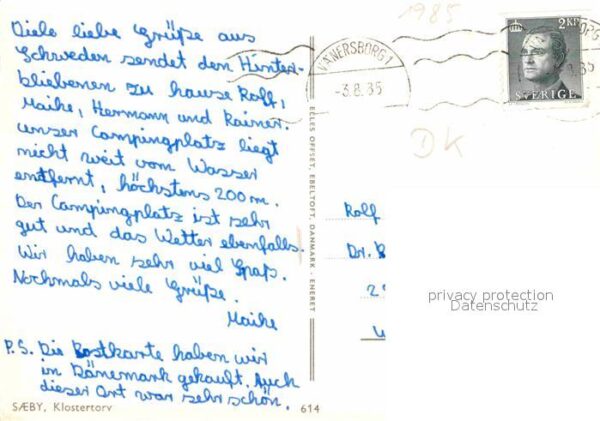 Viele liebe Grüße aus
Schweden sendet den Hinter-
bliebenen zu hause Rolf,
Maike, Hermann und Rainer.
unser Campingplatz liegt
nicht weit vom Wasser
entfernt, höchstens 200 m.
Der Campingplatz ist sehr
gut und das Wetter ebenfalls.
Wir haben sehr viel Spaß.
Nochmals viele Grüße.
Maike
P.S. Die Postkarte haben wir
in Dänemark gekauft. Auch
dieser Ort war sehr schön.
SÆBY, Klostertorv
614
EELES OFFSET, EBELTOFT, DANMARK - ENERET
1985
VÄNERSBORG 1
-3.8.85
2 KR
SVERIGE
DK
Rolf
Dr.
privacy protection
Datenschutz